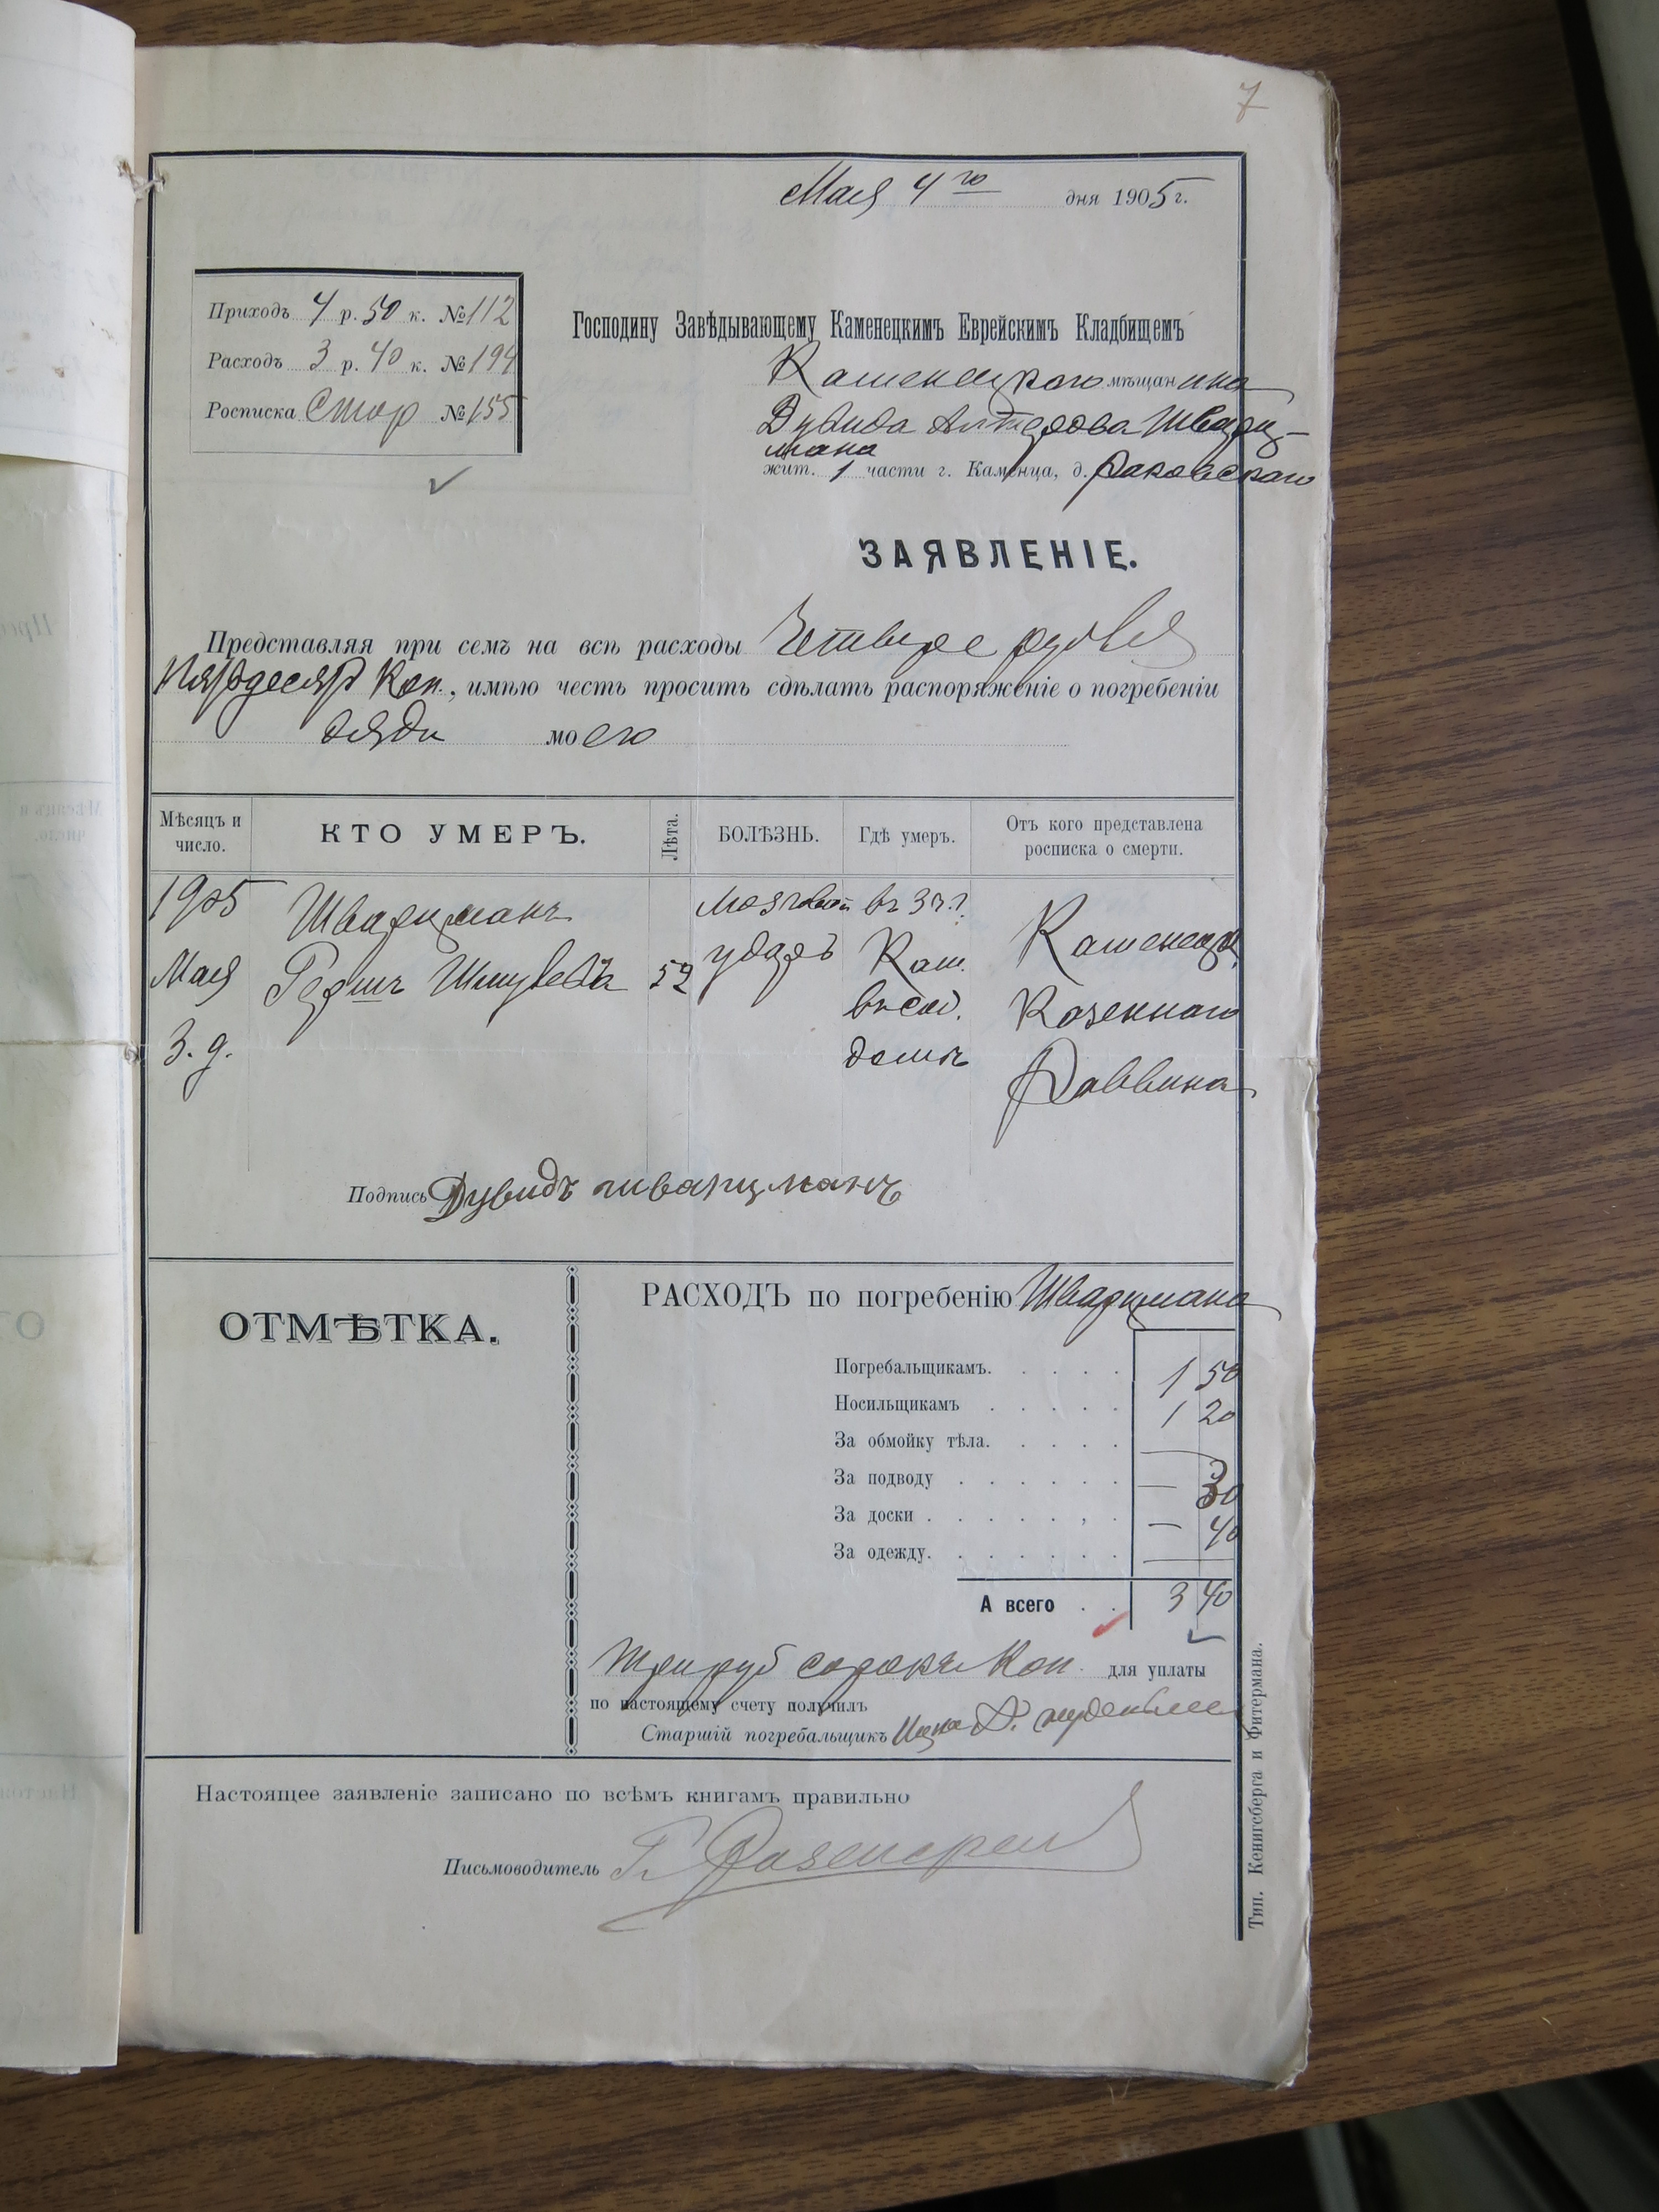 7
Мая 4го дня 1905 г.
Приходъ 4 р. 50 к. № 112
Расходъ 3 р. 40 к. № 194
Росписка Стор № 155
Господину Завѣдывающему Каменецкимъ Еврейскимъ Кладбищемъ
Каменецкого мѣщанина
Дувида Алтерова Шварц-
мана
жит. 1 части г. Каменца, д. Раковскаго
ЗАЯВЛЕНІЕ.
Представляя при семъ на всѣ расходы Четыре рубля
Пятьдесят Коп., имѣю честь просить сдѣлать распоряженіе о погребеніи
дяди моего
Мѣсяцъ и число.
КТО УМЕРЪ.
Лѣта.
БОЛѢЗНЬ.
Гдѣ умеръ.
Отъ кого представлена росписка о смерти.
1905
Мая
3. д.
Шварцманъ
Гершъ Шмулевъ
52
мозговой
ударъ
въ 3 ч. г.
Кам.
въ соб.
домѣ
Каменец.
Казеннаго
Раввина
Подпись Дувидъ шварцманъ
ОТМѢТКА.
РАСХОДЪ по погребенію Шварцмана
Погребальщикамъ. 1 50
Носильщикамъ 1 20
За обмойку тѣла. —
За подводу — 30
За доски — 40
За одежду. —
А всего 3 40
Три руб сорокъ Коп. для уплаты
по настоящему счету получилъ
Старшій погребальщикъ
Настоящее заявленіе записано по всѣмъ книгамъ правильно
Письмоводитель Г.
Тип. Кенигсберга и Фитермана.